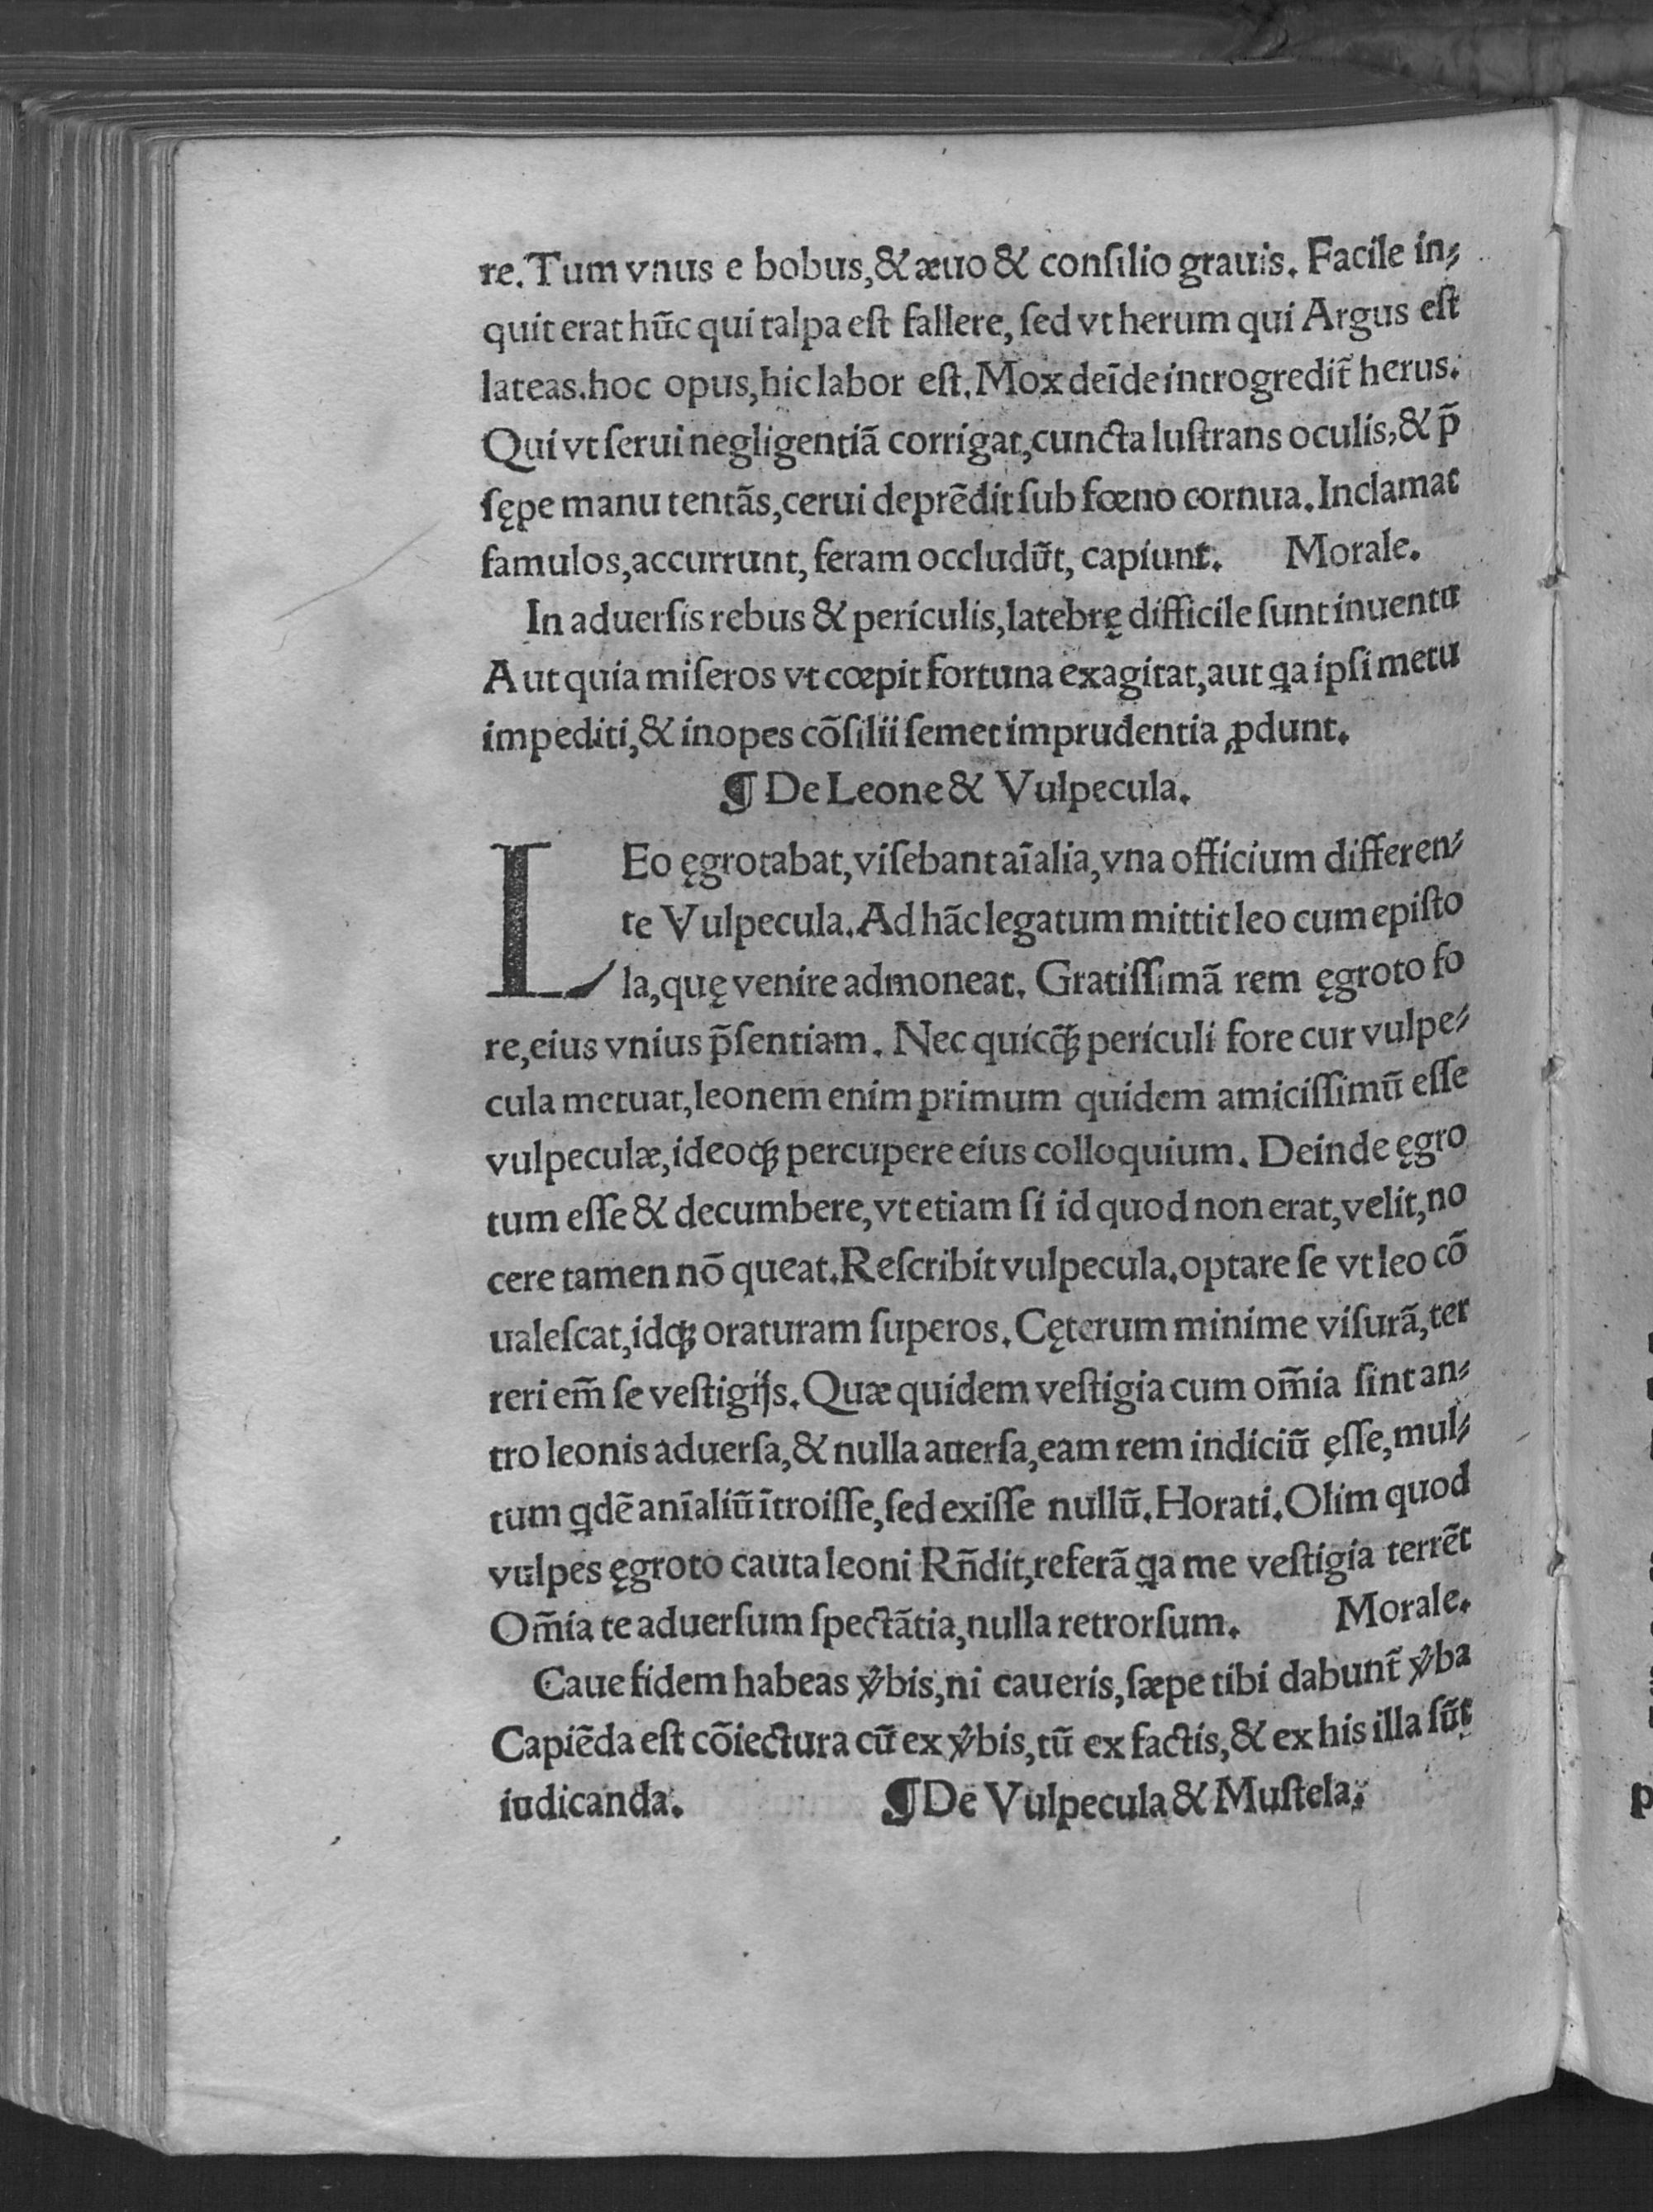 re. Tum vnus e bobus, & æuo & conſilio grauis. Facile in⸗
quit erat hūc qui talpa eſt fallere, ſed vt herum qui Argus eſt
lateas. hoc opus, hic labor eſt. Mox deīde introgredit̃ herus.
Qui vt ſerui negligentiã corrigat, cuncta luſtrans oculis, & p̃
ſępe manu tentãs, cerui deprẽdit ſub fœno cornua. Inclamat
famulos, accurrunt, feram occludũt, capiunt. Morale.
In aduerſis rebus & periculis, latebrę difficile ſunt inuentu
Aut quia miſeros vt cœpit fortuna exagitat, aut ꝗa ipſi metu
impediti, & inopes cõſilii ſemet imprudentia ꝓdunt.
¶ De Leone & Vulpecula.
LEo ęgrotabat, viſebant aĩalia, vna officium differen⸗
te Vulpecula. Ad hãc legatum mittit leo cum epiſto
la, quę venire admoneat. Gratiſſimã rem ęgroto fo
re, eius vnius p̃ſentiam. Nec quicq̃ꝫ periculi fore cur vulpe⸗
cula metuat, leonem enim primum quidem amiciſſimũ eſſe
vulpeculæ, ideoqꝫ percupere eius colloquium. Deinde ęgro
tum eſſe & decumbere, vt etiam ſi id quod non erat, velit, no
cere tamen nõ queat. Reſcribit vulpecula. optare ſe vt leo cõ
ualeſcat, idqꝫ oraturam ſuperos. Cęterum minime viſurã, ter
reri em̃ ſe veſtigijs. Quæ quidem veſtigia cum om̃ia ſint an⸗
tro leonis aduerſa, & nulla auerſa, eam rem indiciũ ęſſe, mul⸗
tum ꝗdẽ anĩaliũ ĩtroiſſe, ſed exiſſe nullũ. Horati. Olim quod
vulpes ęgroto cauta leoni Rñdit, referã ꝗa me veſtigia terrẽt
Om̃ia te aduerſum ſpectãtia, nulla retrorſum. Morale.
Caue fidem habeas v̾bis, ni caueris, ſæpe tibi dabunt̃ v̾ba
Capiẽda eſt cõiectura cũ ex v̾bis, tũ ex factis, & ex his illa ſũt
iudicanda. ¶ De Vulpecula & Muſtela.
p